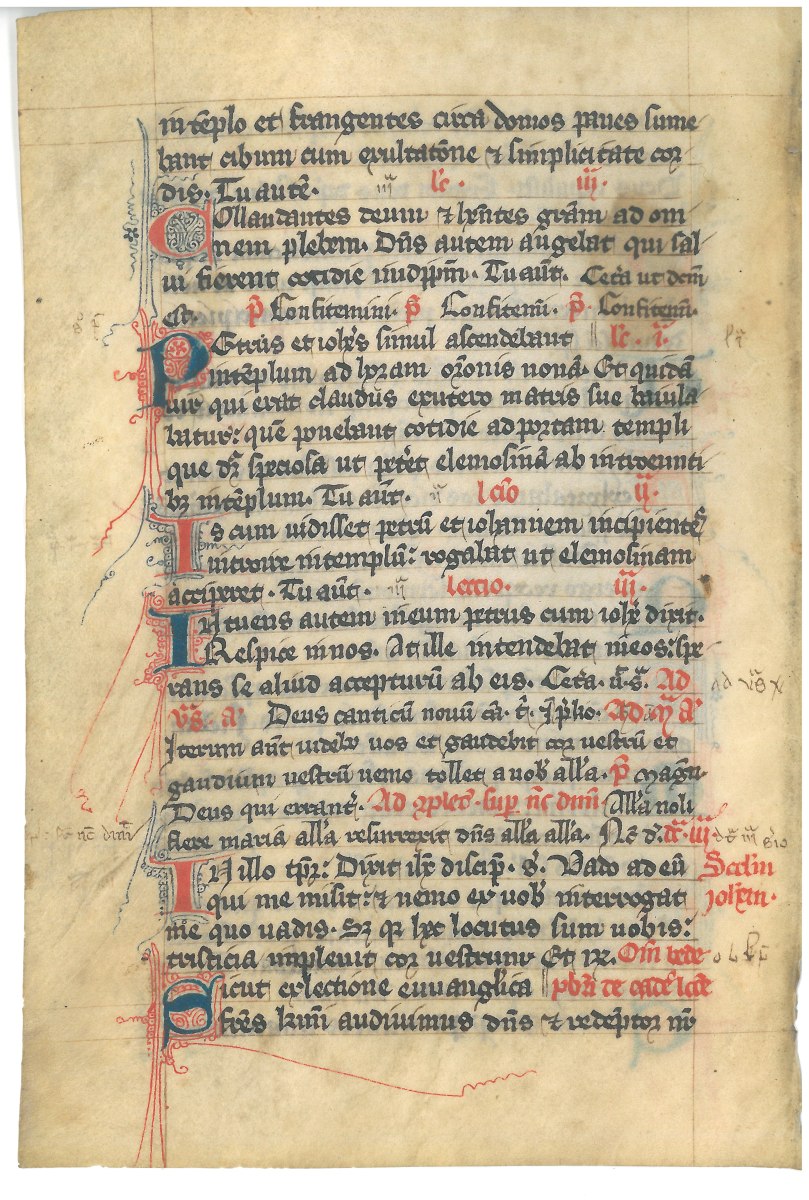 in tēplo et frangentes circa domos panes sume
bant cibum cum exultatōne ⁊ simplicitate cor
dis. Tu autē. lc̄. iii.
Collaudantes deum ⁊ hn̄tes grām ad om
nem plebem. Dn̄s autem augebat qui sal
ui fierent cotidie in idip̄m. Tu aūt. Cet̄a ut dc̄m
est. p̄ Confitemini. p̄ Confitem̄. p̄. Confitem̄.
Petrus et ioh̄s simul ascendebant lc̄. i.
in tēplum ad horam or̄onis nonā. Et quidā
uir qui erat claudus ex utero matris sue baiula
batur: quē ponebant cotidie ad portam templi
que dr̄ speciosa ut petēt elemosinā ab introeunti
bꝫ in tēplum. Tu aūt. lc̄io ii.
Is cum uidisset petrū et iohannem incipientēs
introire in templū: rogabat ut elemosinam
acciperet. Tu aūt. lectio. iii.
Intuens autem in eum petrus cum ioh̄e dixit.
Respice in nos. At ille intendebat in eos: spe
rans se aliud accepturū ab eis. Cet̄a. ū. s̄. Ad
vs̄. a. Deus canticū nouū
Iterum aūt uidebo uos et gaudebit cor uestrū et
gaudium uestrū nemo tollet a uob̄ all̄a. p̄ magn̄.
Deus qui errant. Ad 9plet̄. sup̄ nc̄ dim̄ All̄a noli
flere maria all̄a resurrexit dn̄s all̄a all̄a. Nc̄ d.
In illo tp̄r: Dixit ih̄c discip̄. s. Vado ad eū Scd̄m
qui me misit: et nemo ex uob̄ interrogat ioh̄em.
me quo uadis. Sꝫ qr hec locutus sum uobis:
tristicia impleuit cor uestrum Et r̄. Om̄ bede
Sicut ex lectione euuangl̄ica pb̄ri de eadē lc̄e
fr̄es kr̄mi audiuimus dn̄s ⁊ redēptor nr̄